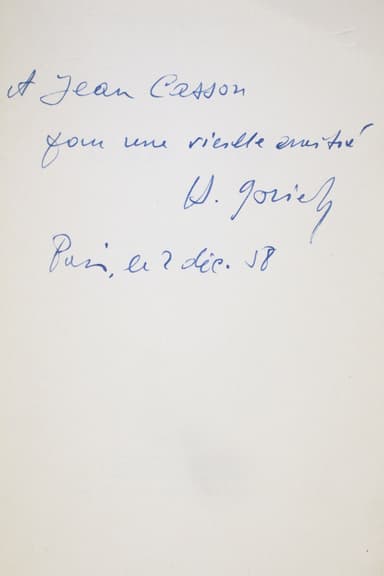 A Jean Casson
pour une vieille amitié
H.
Paris, le 2 déc. 58